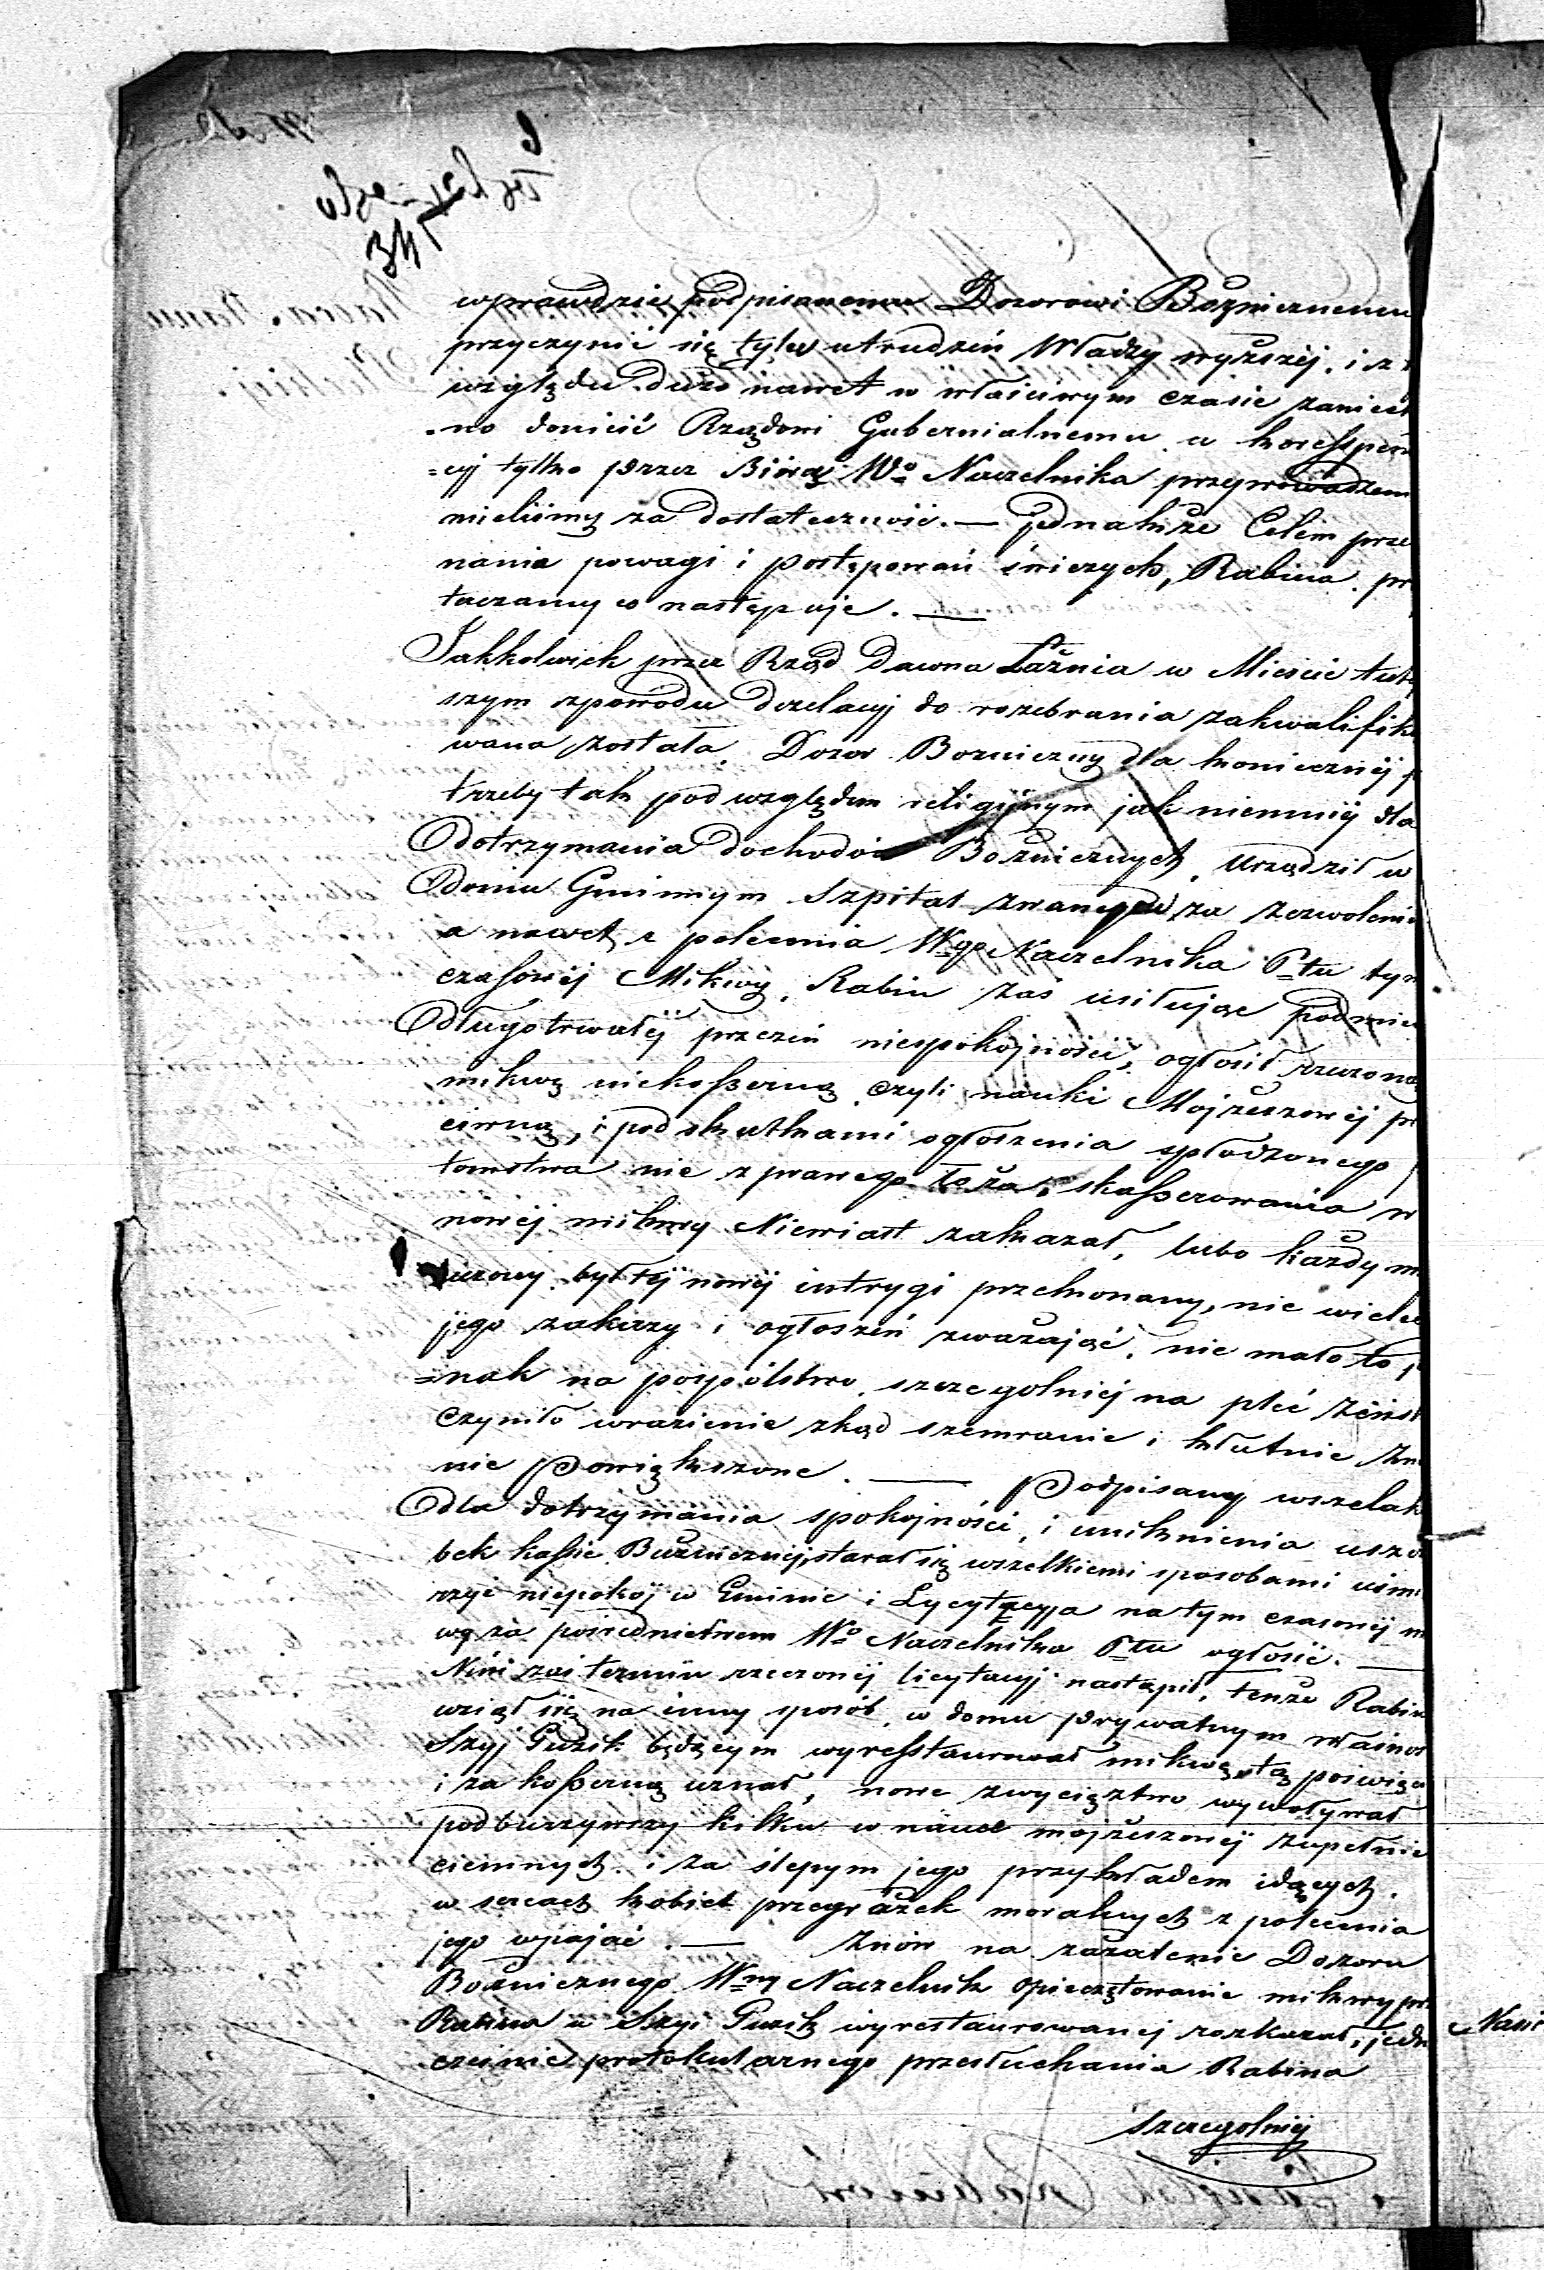 wprawdzie podpisanemu Dozorowi Bożnicznemu
przyczynić się tyle utrudzeń Władzy wyższej, i z
względu dużo nawet w właściwym czasie zaniecha
no donieść Rządowi Gubernialnemu, a korrespon
=cyj tylko przez Biuro Wo Naczelnika przeprowadzen
mieliśmy za dostateczność. — jednakże Celem prze
nania powagi i postępowań świeżych, Rabina pr
taczamy co następuje. —
Jakkolwiek przez Rząd dawna Łaźnia w Mieście tut
szym zpowodu dezelacyj do rozebrania zakwalifik
wana została, Dozor Bożniczny dla koniecznej p
trzeby tak pod względem religijnym jak niemniej dla
dotrzymania dochodów Bożnicznych, urządził w
domu Gminnym Szpital zwanym za zezwoleniem
a nawet z polecenia Wgo Naczelnika Ptu tym
czasowej Mikwy, Rabin zaś usiłując podniec
długotrwałej przezeń niespokojności, ogłosił rzeczoną
mikwę niekoszerną czyli nauki Mojżeszowej pr
ciwną, i pod skutkami ogłoszenia spłodzonego p
tomstwa nie z prawego łoża, skaszerowania w
nowej mikwy Niewiast zakazał, lubo każdy m
był tej nowej intrygi przekonany, nie wiele
jego zakazy i ogłoszeń zważając, nie mało to j
=nak na pospólstwo szczególniej na płeć żeńsk
czyniło wrażenie zkąd szemranie i kłutnie zn
nie powiększone. — Podpisany wszelak
dla dotrzymania spokojności, i uniknienia uszcz
bek kassie Bożnicznej, starał się wszelkiemi sposobami uśmi
rzyć niepokój w Gminie i Lycytacyja na tym czasowej m
wę za pośrednictwem Wo Naczelnika Ptu ogłosić. —
Nim zaś termin rzeczonej licytacyj nastąpił, tenże Rabin
wziął się na inny sposób, w domu prywatnym własnoś
Szyj Guzik będącym wyresstaurował mikwę, tą poświęc
i za koszerną uznał, nowe zwycięztwo wywoływał
podburzywszy kilku w nauce mojżeszowej zupełnie
ciemnych i za ślepym jego przykładem idących.
w sercach kobiet przegrażek moralnych z polecenia
jego wpajać. — Znów na zażalenie Dozoru
Bożnicznego Wny Naczelnik opieczętowanie mikwy prz
Rabina u Szyi Guzik wyrestaurowanej rozkazał, jedn
cześnie protokularnego przesłuchania Rabina
szczególniej